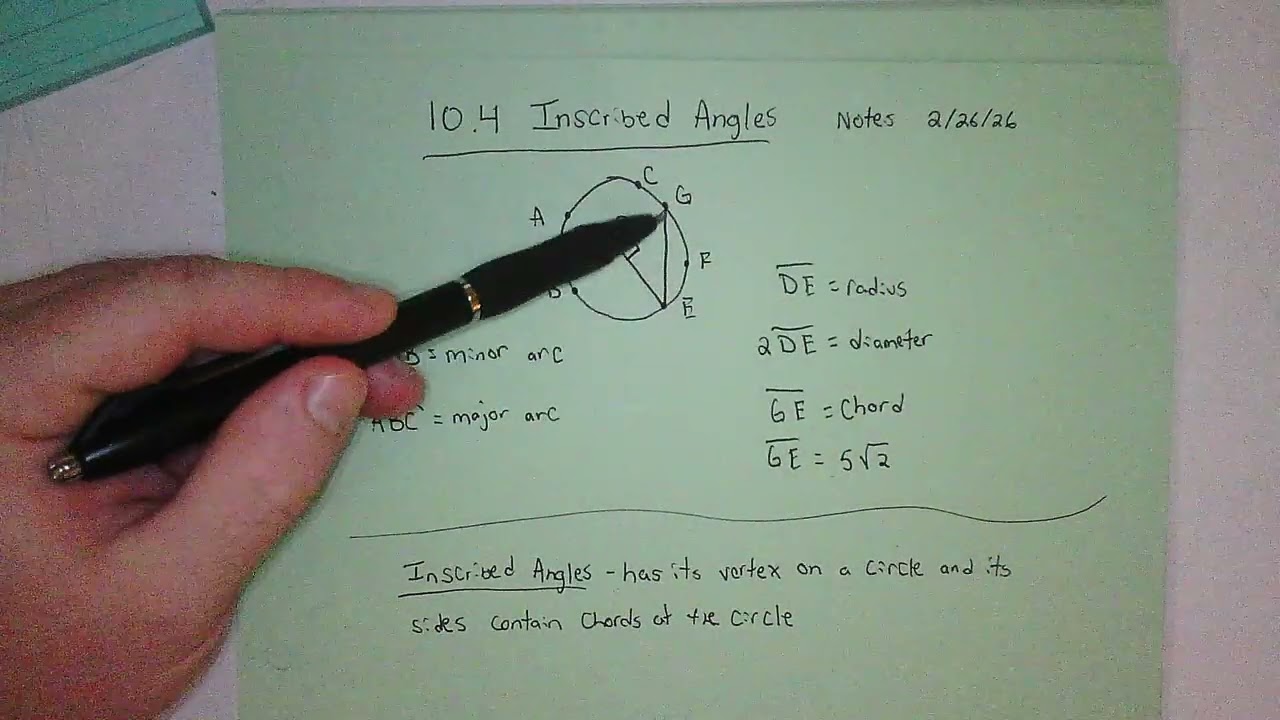 10.4 Inscribed Angles Notes 2/26/26
C
G
A
F
E
DE = radius
2DE = diameter
B = minor arc
GE = Chord
ABC = major arc
GE = 5√2
Inscribed Angles - has its vertex on a circle and its
sides contain Chords of the circle